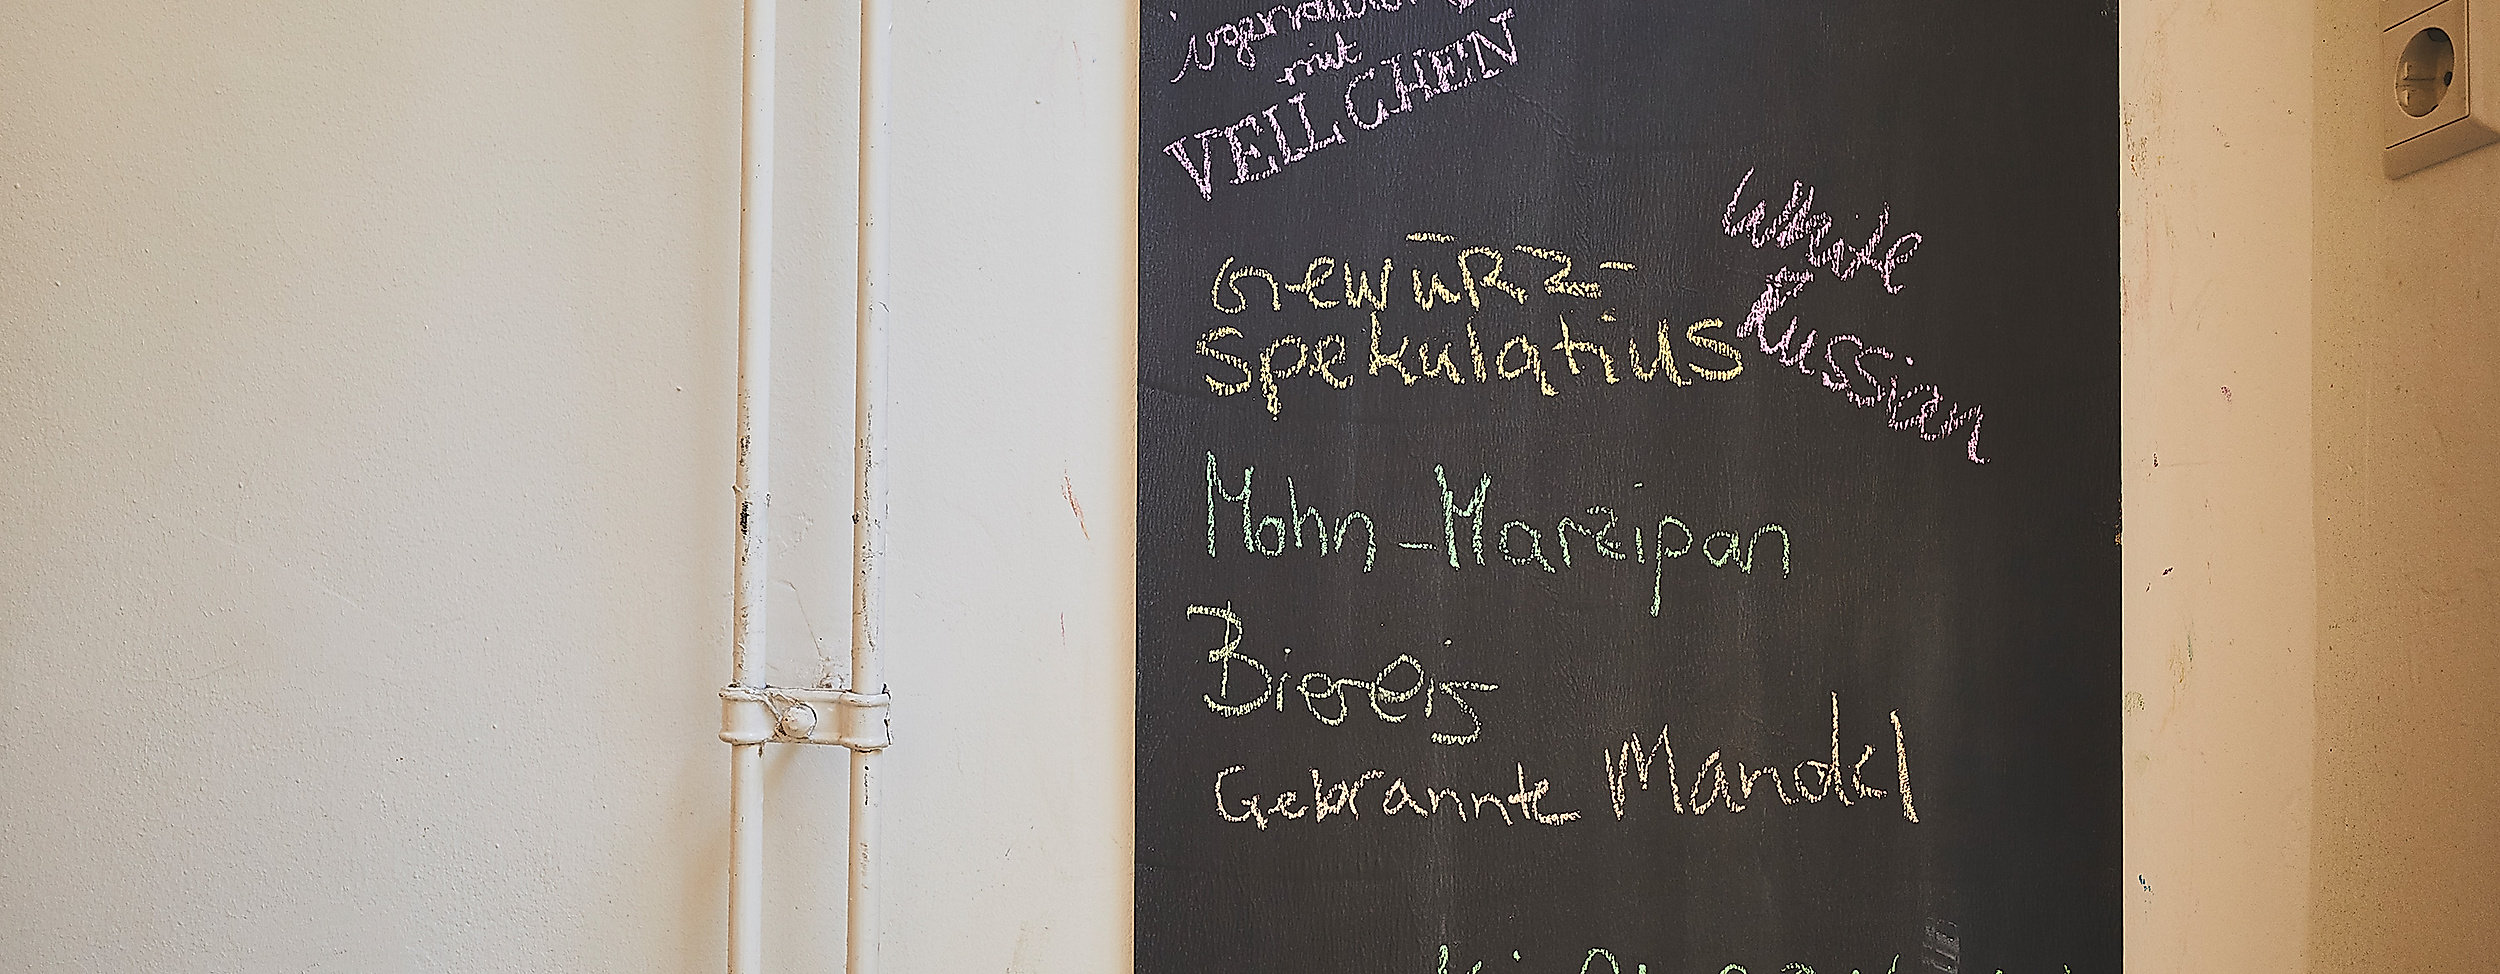 mit
VEILCHEN
White
Russian
GEWÜRZ-
Spekulatius
Mohn-Marzipan
Biereis
Gebrannte Mandel